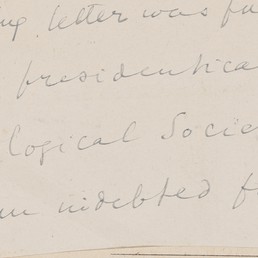 letter was
presidentica
logical Socie
indebted f